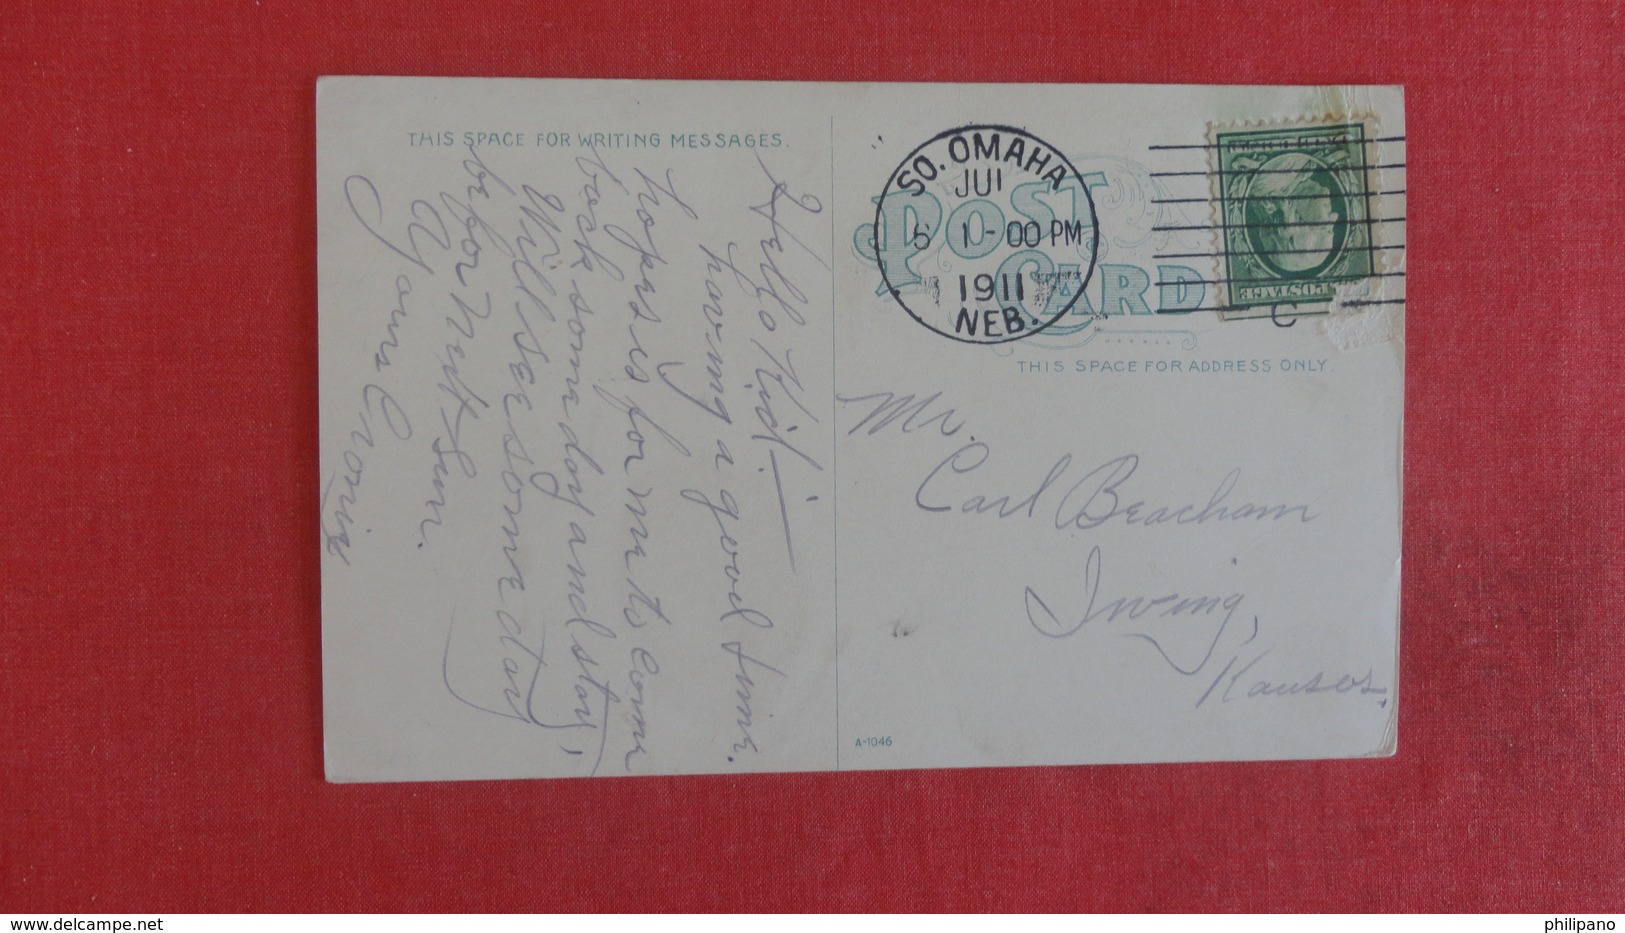 THIS SPACE FOR WRITING MESSAGES.
Hello Kid! —
having a good time.
hopers is for me to come
back some day and stay,
Will see some day
before next Sun.
Yours
SO. OMAHA
JUL
6 1-00 PM
1911
NEB.
POST
CARD
POSTAGE
THIS SPACE FOR ADDRESS ONLY.
Mr.
Carl Beacham
Irving,
Kansas.
A-1046
delcampe.net
philipano